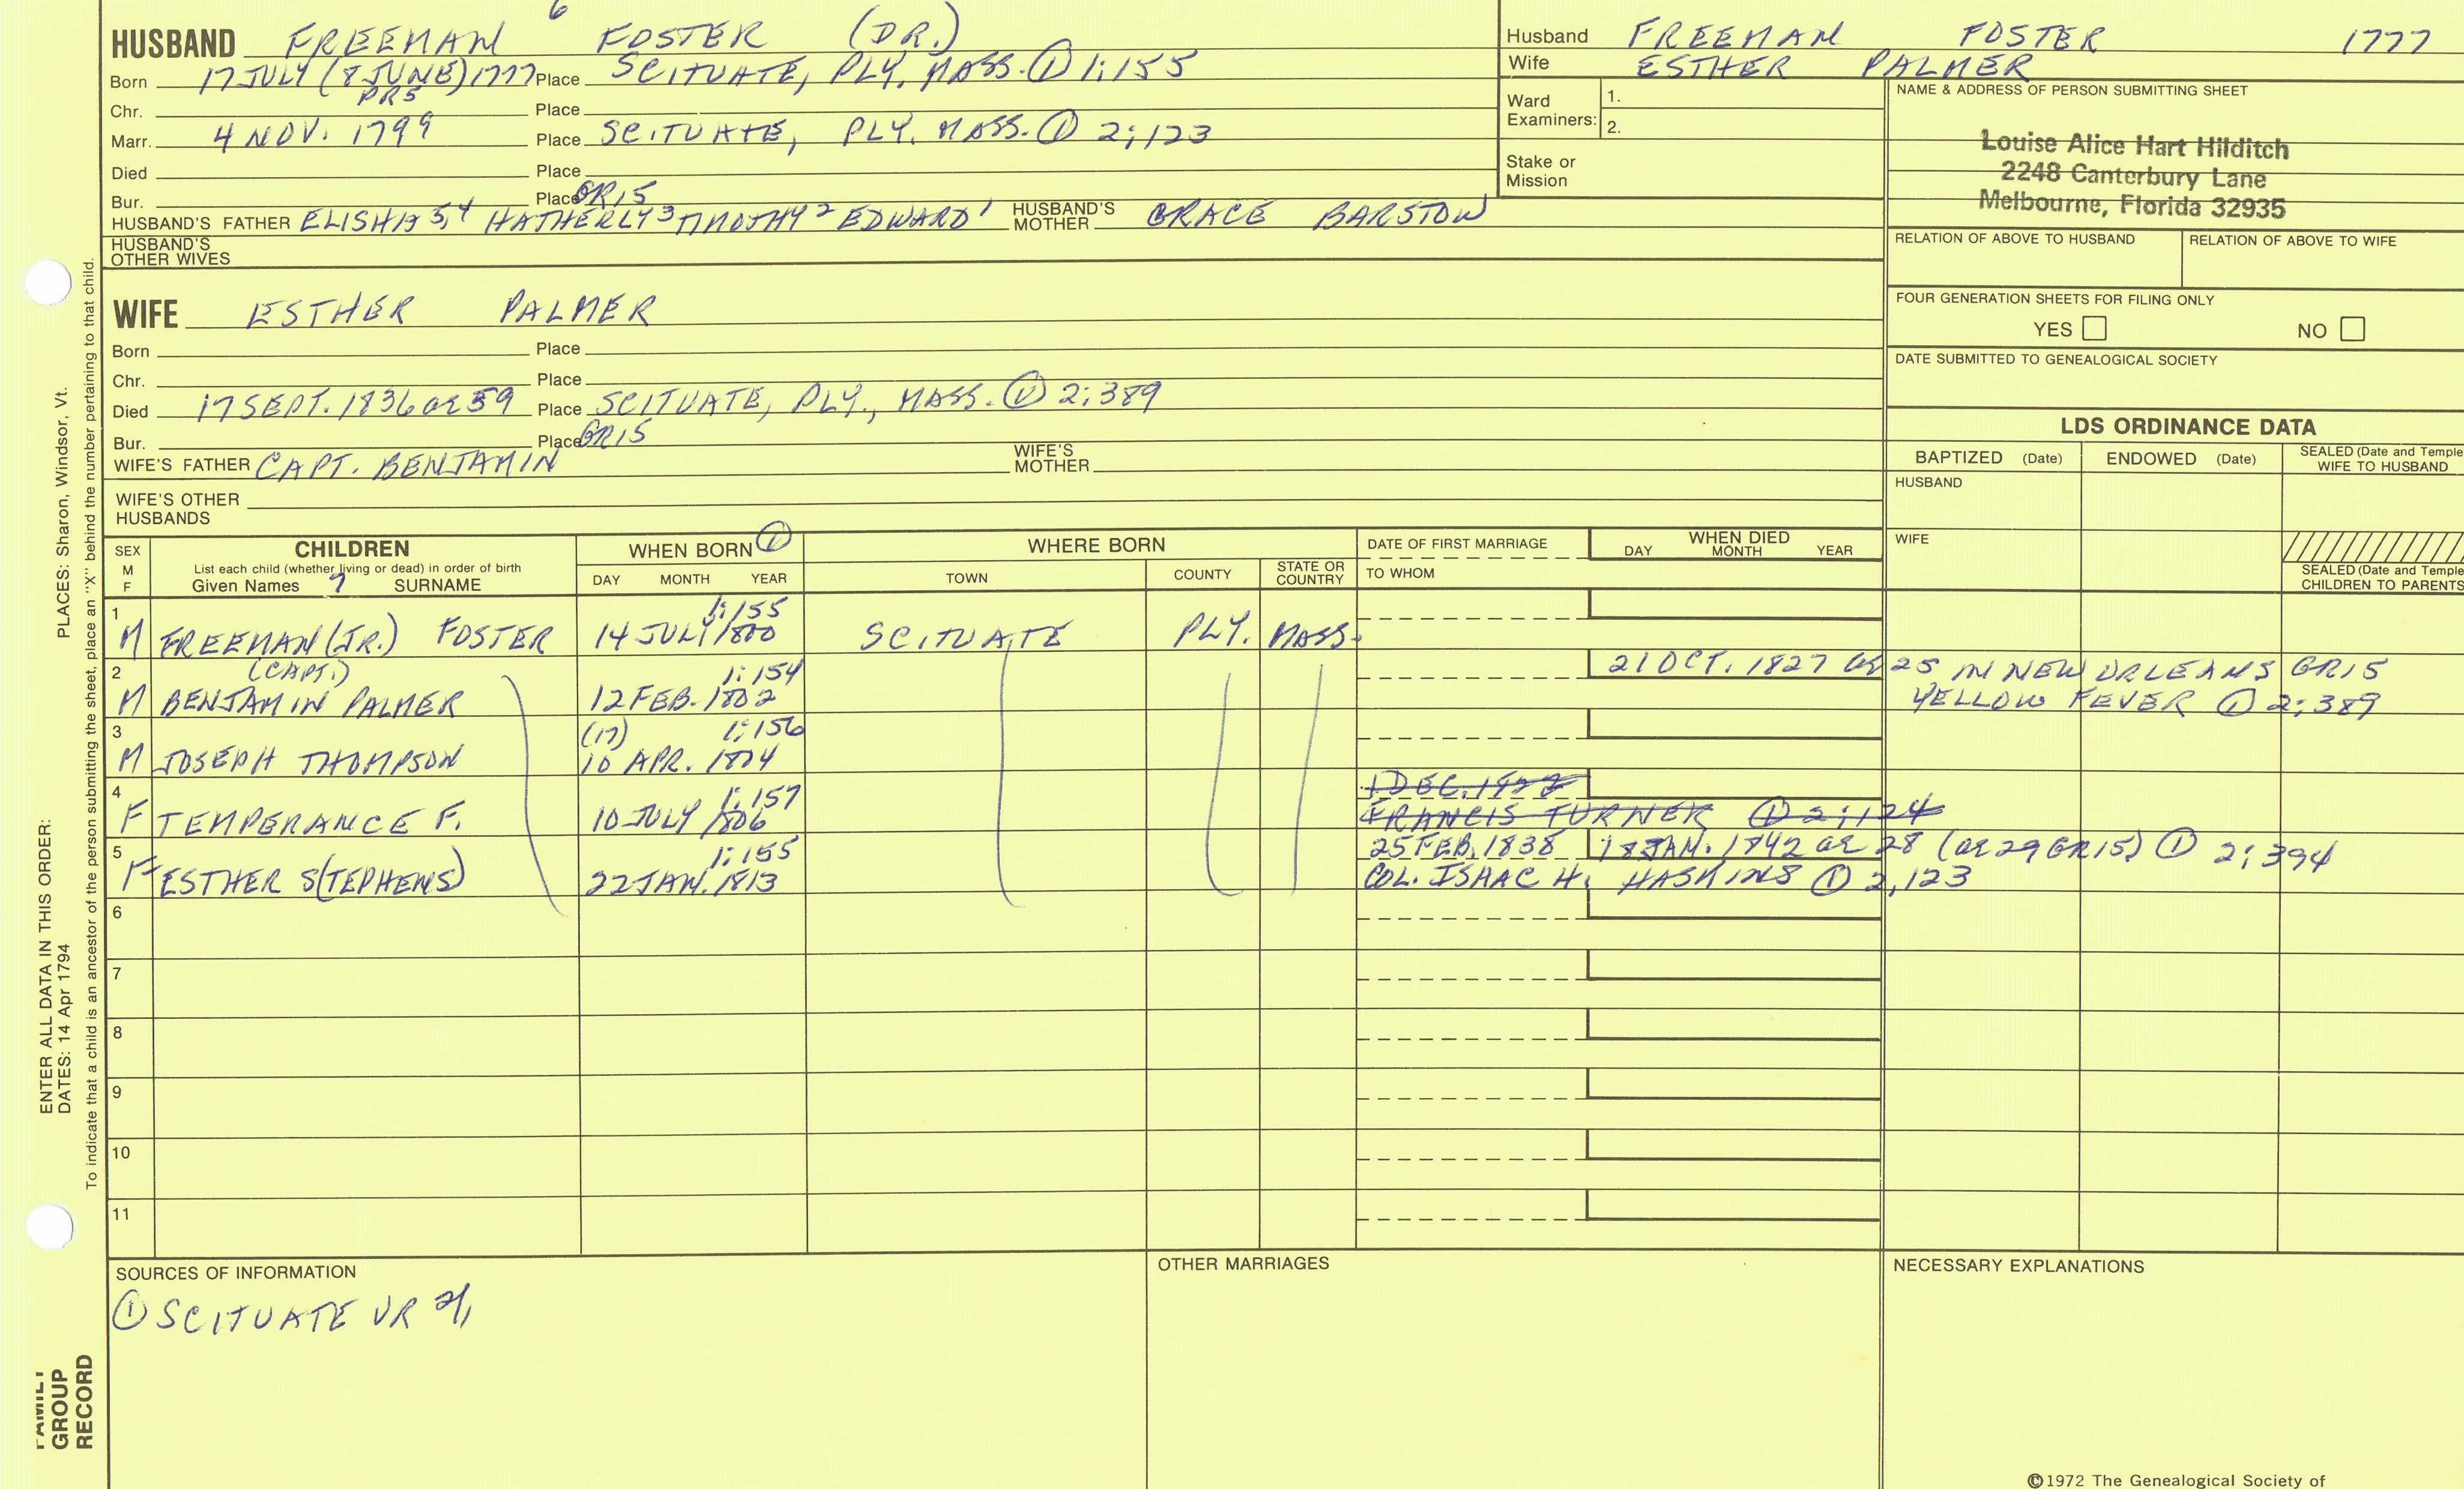 HUSBAND FREEMAN 6 FOSTER (DR.)
Born 17 JULY (8 JUNE) 1777 Place SCITUATE, PLY. MASS. ① 1:155
PR5
Chr. Place
Marr. 4 NOV. 1799 Place SCITUATE, PLY. MASS. ① 2:123
Died Place
Bur. Place GR15
HUSBAND'S FATHER ELISHA 5,4 HATHERLY 3 TIMOTHY 2 EDWARD 1 HUSBAND'S MOTHER GRACE BARSTOW
HUSBAND'S OTHER WIVES
Husband FREEMAN FOSTER 1777
Wife ESTHER PALMER
Ward Examiners: 1.
2.
Stake or Mission
NAME & ADDRESS OF PERSON SUBMITTING SHEET
Louise Alice Hart Hilditch
2248 Canterbury Lane
Melbourne, Florida 32935
RELATION OF ABOVE TO HUSBAND RELATION OF ABOVE TO WIFE
FOUR GENERATION SHEETS FOR FILING ONLY
YES NO
DATE SUBMITTED TO GENEALOGICAL SOCIETY
WIFE ESTHER PALMER
Born Place
Chr. Place
Died 17 SEPT. 1836 ae 59 Place SCITUATE, PLY., MASS. ① 2:389
Bur. Place GR15
WIFE'S FATHER CAPT. BENJAMIN WIFE'S MOTHER
WIFE'S OTHER HUSBANDS
LDS ORDINANCE DATA
BAPTIZED (Date) ENDOWED (Date) SEALED (Date and Temple
WIFE TO HUSBAND
HUSBAND
WIFE
SEALED (Date and Temple
CHILDREN TO PARENTS
SEX M F CHILDREN WHEN BORN ① WHERE BORN DATE OF FIRST MARRIAGE WHEN DIED
List each child (whether living or dead) in order of birth
Given Names 7 SURNAME DAY MONTH YEAR TOWN COUNTY STATE OR COUNTRY TO WHOM DAY MONTH YEAR
1 1:155
M FREEMAN (JR.) FOSTER 14 JULY 1800 SCITUATE PLY. MASS.
2 (CAPT.) 1:154 21 OCT. 1827 ae 25 IN NEW ORLEANS GR15
M BENJAMIN PALMER 12 FEB. 1802 YELLOW FEVER ① 2:389
3 (17) 1:156
M JOSEPH THOMPSON 10 APR. 1804
4 1:157 1 DEC. 1822
F TEMPERANCE F. 10 JULY 1806 FRANCIS TURNER ① 2:124
5 1:155 25 FEB. 1838 18 JAN. 1842 ae 28 (ae 29 GR15) ① 2:394
F ESTHER S(TEPHENS) 22 JAN. 1813 COL. ISAAC H. HASKINS ① 2,123
6
7
8
9
10
11
SOURCES OF INFORMATION OTHER MARRIAGES NECESSARY EXPLANATIONS
① SCITUATE VR
©1972 The Genealogical Society of
ENTER ALL DATA IN THIS ORDER:
DATES: 14 Apr 1794 PLACES: Sharon, Windsor, Vt.
To indicate that a child is an ancestor of the person submitting the sheet, place an "X" behind the number pertaining to that child.
FAMILY
GROUP
RECORD